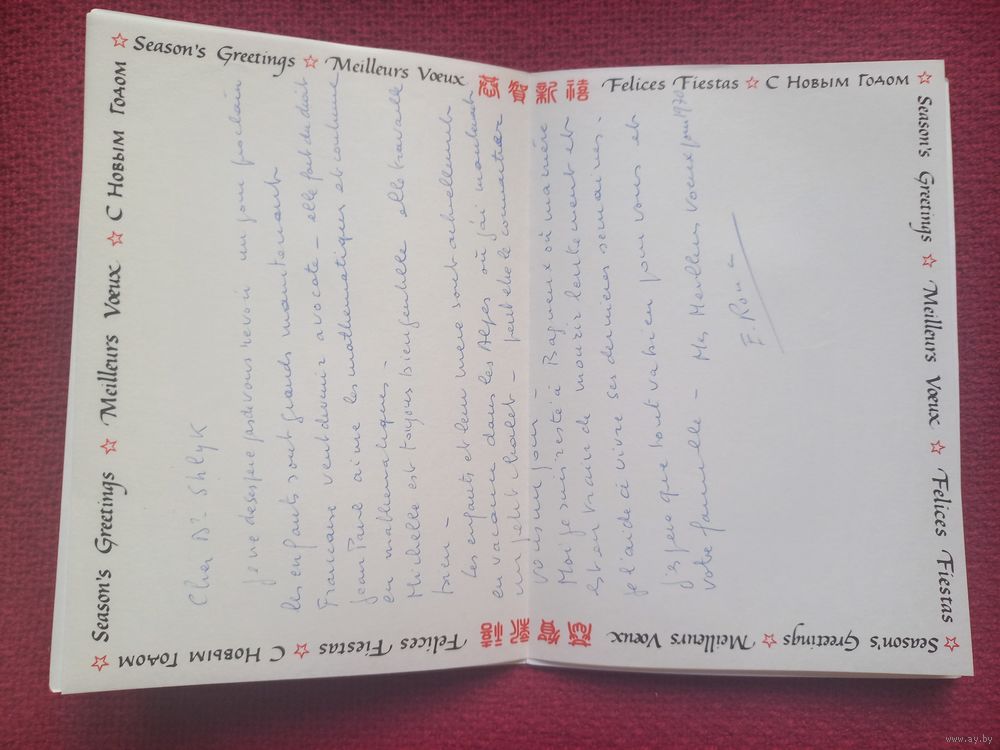 Season's Greetings ☆ Meilleurs Vœux 恭賀新禧 Felices Fiestas ☆ С Новым Годом ☆
Season's Greetings ☆ Meilleurs Vœux ☆ Felices Fiestas
Season's Greetings ☆ Meilleurs Vœux 恭賀新禧 Felices Fiestas ☆ С Новым Годом ☆
Season's Greetings ☆ Meilleurs Vœux ☆ С Новым Годом ☆
Cher Dr. Shlyk
je ne desespere pas de vous revoir un jour prochain
les enfants sont grands maintenant
veut devenir avocate – elle fait du droit
Jean Paul aime les mathematiques et continue
en mathematiques –
Michelle est toujours bien gentille elle travaille
bien –
Les enfants et leur mere sont actuellement
en vacance dans les Alpes où j'ai maintenant
un petit chalet – peut etre le connaitrez
vous un jour –
Moi je suis resté à Bagneux où ma mère
est en train de mourir lentement et
je l'aide à vivre ses dernieres semaines.
j'espere que tout va bien pour vous et
votre famille – Mes Meilleurs voeux pour
F.
www.ay.by